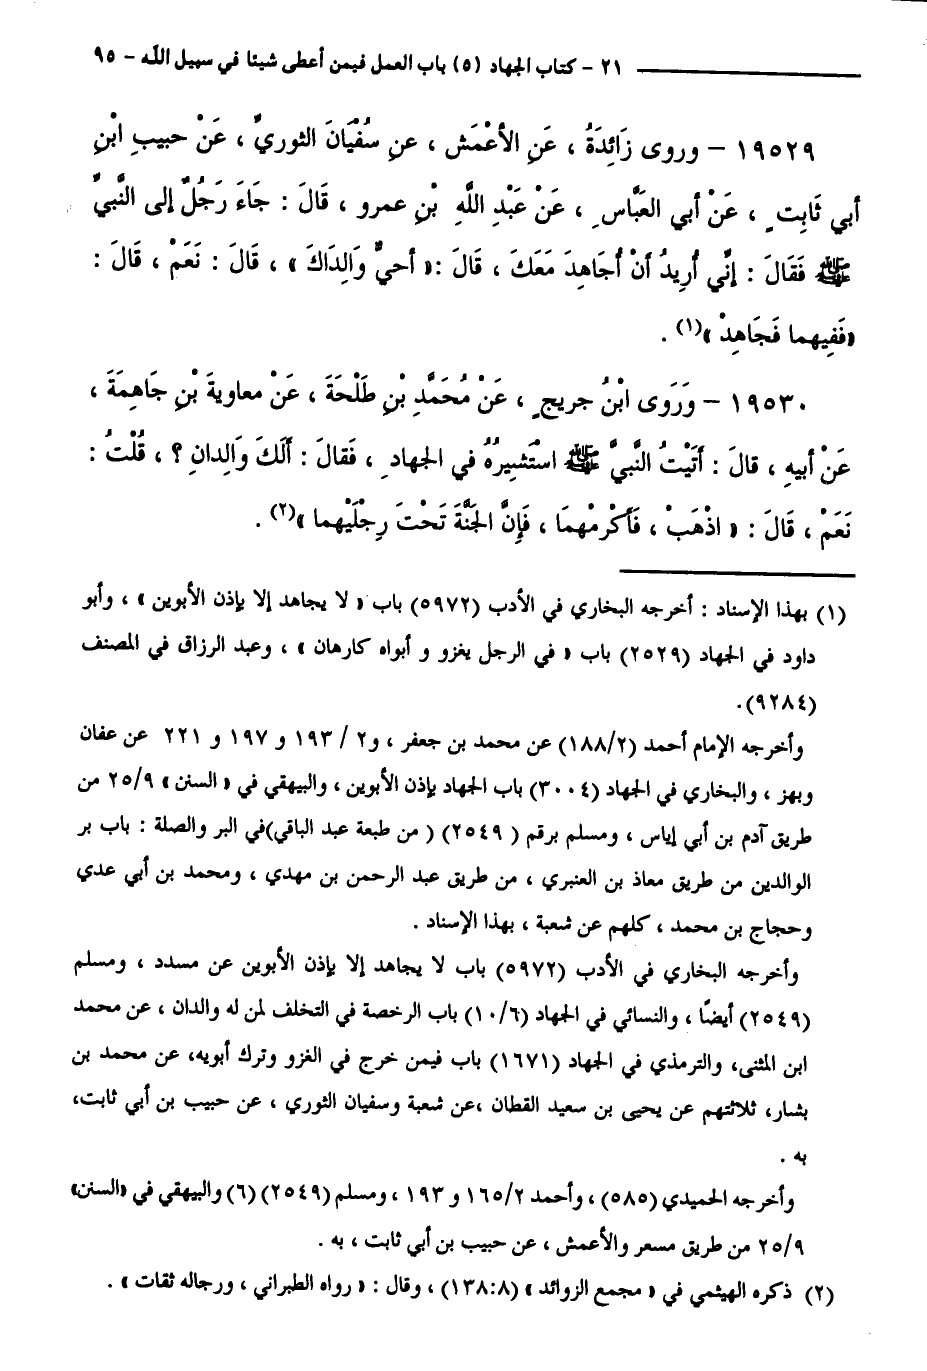 ٢١ - كتاب الجهاد (٥) باب العمل فيمن أعطى شيئا في سبيل الله - ٩٥
١٩٥٢٩ - وروى زَائِدَةُ ، عَنِ الأعْمَش ، عنِ سفْيَانَ الثوريِّ ، عَنْ حبيبِ ابْنِ
أبي ثَابِتٍ ، عَنْ أبي العَبَّاسِ ، عَنْ عَبْدِ اللَّهِ بْنِ عمرو ، قَالَ : جَاءَ رَجُلٌ إلى النَّبيِّ
ﷺ فَقَالَ : إنِّي أُرِيدُ أنْ أُجَاهِدَ مَعَكَ ، قَالَ :« أحيٌّ وَالِدَاكَ » ، قَالَ : نَعَمْ ، قَالَ :
«فَفِيهما فَجَاهِدْ »(١) .
١٩٥٣٠ - وَرَوى ابْنُ جريجٍ ، عَنْ مُحَمَّدِ بْنِ طَلْحَةَ ، عَنْ معاويةَ بْنِ جَاهِمَةَ ،
عَنْ أبيهِ ، قالَ : أتَيْتُ النَّبيَّ ﷺ استَشِيرُهُ في الجهادِ ، فَقالَ : ألَكَ وَالِدانِ ؟ ، قُلْتُ :
نَعَمْ ، قَالَ : « اذْهَبْ ، فَأَكْرِمْهُمَا ، فَإِنَّ الجَنَّةَ تَحْتَ رِجْلَيْهِما »(٢) .
(١) بهذا الإسناد : أخرجه البخاري في الأدب (٥٩٧٢) باب « لا يجاهد إلا بإذن الأبوين » ، وأبو
داود في الجهاد (٢٥٢٩) باب « في الرجل يغزو و أبواه كارهان » ، وعبد الرزاق في المصنف
(٩٢٨٤).
وأخرجه الإمام أحمد (١٨٨/٢) عن محمد بن جعفر ، و٢ / ١٩٣ و ١٩٧ و ٢٢١ عن عفان
وبهز ، والبخاري في الجهاد (٣٠٠٤) باب الجهاد بإذن الأبوين ، والبيهقي في « السنن » ٢٥/٩ من
طريق آدم بن أبي إياس ، ومسلم برقم ( ٢٥٤٩) ( من طبعة عبد الباقي)في البر والصلة : باب بر
الوالدين من طريق معاذ بن العنبري ، من طريق عبد الرحمن بن مهدي ، ومحمد بن أبي عدي
وحجاج بن محمد ، كلهم عن شعبة ، بهذا الإسناد .
وأخرجه البخاري في الأدب (٥٩٧٢) باب لا يجاهد إلا بإذن الأبوين عن مسدد ، ومسلم
(٢٥٤٩) أيضًا ، والنسائي في الجهاد (١٠/٦) باب الرخصة في التخلف لمن له والدان ، عن محمد
ابن المثنى، والترمذي في الجهاد (١٦٧١) باب فيمن خرج في الغزو وترك أبويه، عن محمد بن
بشار، ثلاثتهم عن يحيى بن سعيد القطان ،عن شعبة وسفيان الثوري ، عن حبيب بن أبي ثابت،
به .
وأخرجه الحميدي (٥٨٥) ، وأحمد ١٦٥/٢ و ١٩٣ ، ومسلم (٢٥٤٩) (٦) والبيهقي في «السنن»
٢٥/٩ من طريق مسعر والأعمش ، عن حبيب بن أبي ثابت ، به .
(٢) ذكره الهيثمي في « مجمع الزوائد » (١٣٨:٨) ، وقال : « رواه الطبراني ، ورجاله ثقات » .